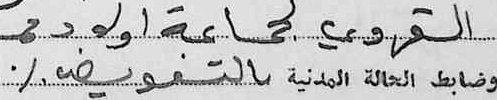 القروي لجماعة اولاد
وضابط الحالة المدنية بالتفويض./.